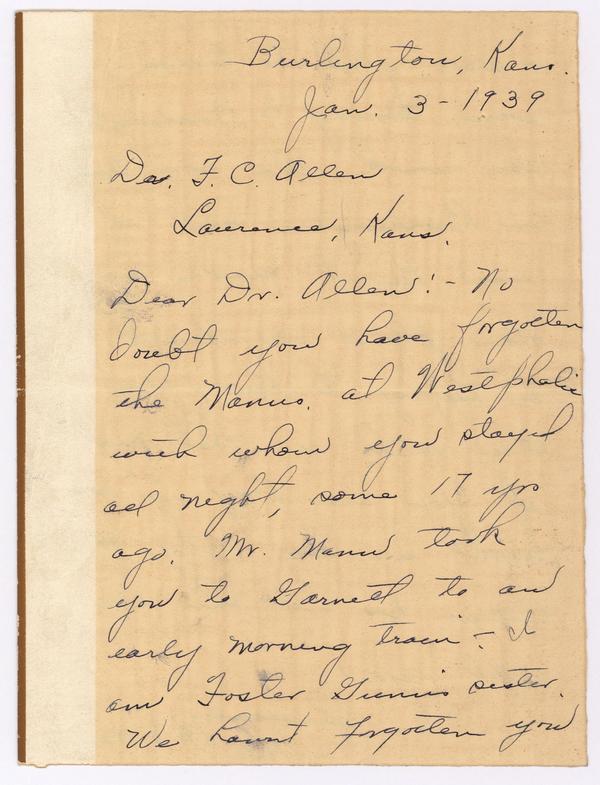 Burlington, Kans.
Jan. 3-1939
Dr. F. C. Allen
Lawrence, Kans.
Dear Dr. Allen:- No
doubt you have forgotten
the Manns. at Westphalia
with whom you stayed
all night, some 17 yrs
ago. Mr. Mann took
you to Garnett to an
early morning train - I
am Foster sister.
We havnt forgotten you